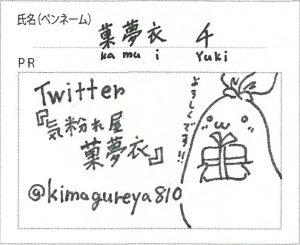 氏名(ペンネーム)
菓夢衣 千
kamui Yuki
PR
Twitter
『気粉れ屋
菓夢衣』
@kimagureya810
よろしくです!!